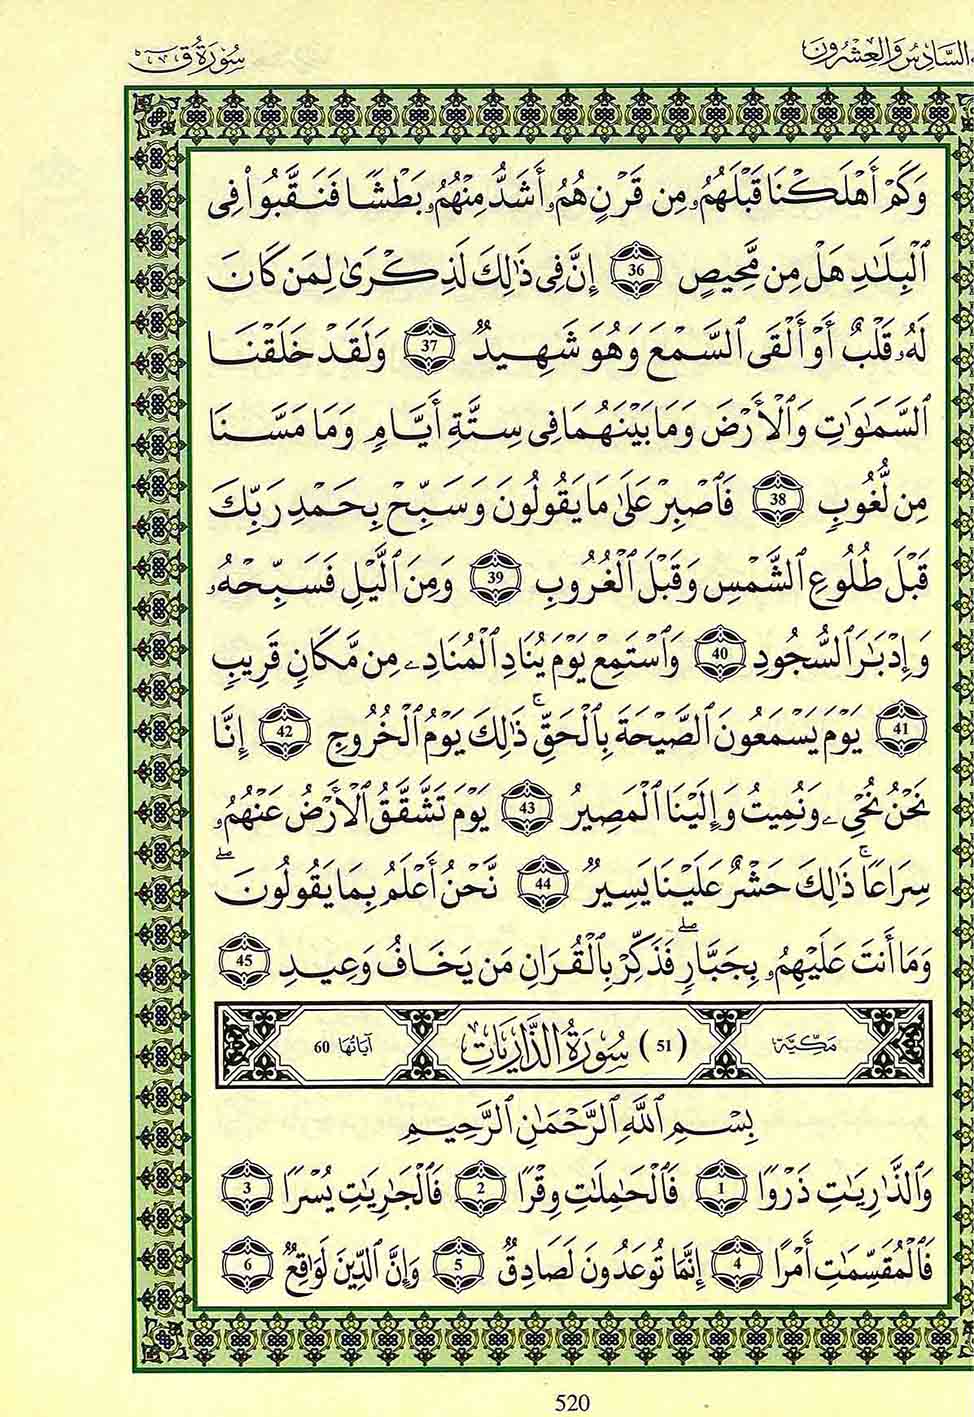 السَّادِسُ وَالعِشْرُونَ
سُورَةُ ق
وَكَمْ أَهْلَكْنَا قَبْلَهُمُۥ مِن قَرْنٍ هُمُۥ أَشَدُّ مِنْهُمُۥ بَطْشًا فَنَقَّبُواْ فِى
ٱلْبِلَٰدِ هَلْ مِن مَّحِيصٍ 36 إِنَّ فِى ذَٰلِكَ لَذِكْرَىٰ لِمَن كَانَ
لَهُۥ قَلْبٌ أَوْ أَلْقَى ٱلسَّمْعَ وَهُوَ شَهِيدٌ 37 وَلَقَدْ خَلَقْنَا
ٱلسَّمَٰوَٰتِ وَٱلْأَرْضَ وَمَا بَيْنَهُمَا فِى سِتَّةِ أَيَّامٍ وَمَا مَسَّنَا
مِن لُّغُوبٍ 38 فَٱصْبِرْ عَلَىٰ مَا يَقُولُونَ وَسَبِّحْ بِحَمْدِ رَبِّكَ
قَبْلَ طُلُوعِ ٱلشَّمْسِ وَقَبْلَ ٱلْغُرُوبِ 39 وَمِنَ ٱلَّيْلِ فَسَبِّحْهُۥ
وَإِدْبَٰرَ ٱلسُّجُودِ 40 وَٱسْتَمِعْ يَوْمَ يُنَادِ ٱلْمُنَادِۦ مِن مَّكَانٍ قَرِيبٍ
41 يَوْمَ يَسْمَعُونَ ٱلصَّيْحَةَ بِٱلْحَقِّ ۚ ذَٰلِكَ يَوْمُ ٱلْخُرُوجِ 42 إِنَّا
نَحْنُ نُحْىِۦ وَنُمِيتُ وَإِلَيْنَا ٱلْمَصِيرُ 43 يَوْمَ تَشَّقَّقُ ٱلْأَرْضُ عَنْهُمُۥ
سِرَاعًا ۚ ذَٰلِكَ حَشْرٌ عَلَيْنَا يَسِيرٌ 44 نَّحْنُ أَعْلَمُ بِمَا يَقُولُونَ ۖ
وَمَا أَنتَ عَلَيْهِمُۥ بِجَبَّارٍ ۖ فَذَكِّرْ بِٱلْقُرَانِ مَن يَخَافُ وَعِيدِ 45
مَكِّيَّة (51) سُورَةُ الذَّارِيَاتِ آيَاتُهَا 60
بِسْمِ ٱللَّهِ ٱلرَّحْمَٰنِ ٱلرَّحِيمِ
وَٱلذَّٰرِيَٰتِ ذَرْوًا 1 فَٱلْحَٰمِلَٰتِ وِقْرًا 2 فَٱلْجَٰرِيَٰتِ يُسْرًا 3
فَٱلْمُقَسِّمَٰتِ أَمْرًا 4 إِنَّمَا تُوعَدُونَ لَصَادِقٌ 5 وَإِنَّ ٱلدِّينَ لَوَٰقِعٌ 6
520